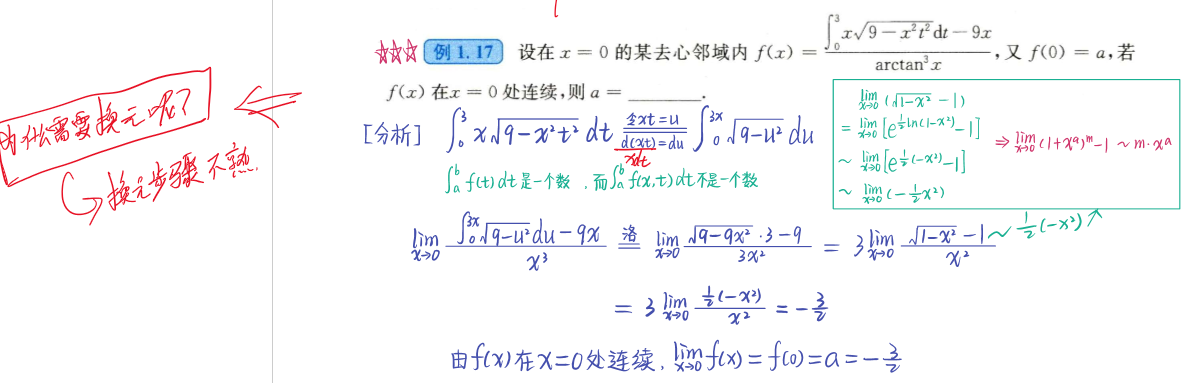 ☆☆☆ 例 1.17 设在 x = 0 的某去心邻域内 f(x) = \frac{\int_0^3 x\sqrt{9-x^2t^2}dt-9x}{\arctan^3 x}, 又 f(0) = a, 若
f(x) 在 x = 0 处连续, 则 a = ________.
为什么需要换元呢?
换元步骤不熟……
[分析] \int_0^3 x\sqrt{9-x^2t^2} dt \xlongequal[d(xt)=du]{令xt=u} \int_0^{3x} \sqrt{9-u^2} du
xdt
\int_a^b f(t)dt是一个数,而\int_a^b f(x,t)dt不是一个数
\lim_{x→0} (\sqrt{1-x^2} - 1)
= \lim_{x→0} [e^{\frac{1}{2}ln(1-x^2)} - 1]
⇒ \lim_{x→0} (1+x^a)^m - 1 ~ m·x^a
~ \lim_{x→0} [e^{\frac{1}{2}(-x^2)} - 1]
~ \lim_{x→0} (-\frac{1}{2}x^2)
\lim_{x→0} \frac{\int_0^{3x}\sqrt{9-u^2}du-9x}{x^3} \xlongequal{洛} \lim_{x→0} \frac{\sqrt{9-9x^2}·3-9}{3x^2} = 3\lim_{x→0} \frac{\sqrt{1-x^2}-1}{x^2} ~ \frac{1}{2}(-x^2)
= 3 \lim_{x→0} \frac{\frac{1}{2}(-x^2)}{x^2} = -\frac{3}{2}
由f(x)在x=0处连续, \lim_{x→0} f(x) = f(0) = a = -\frac{3}{2}